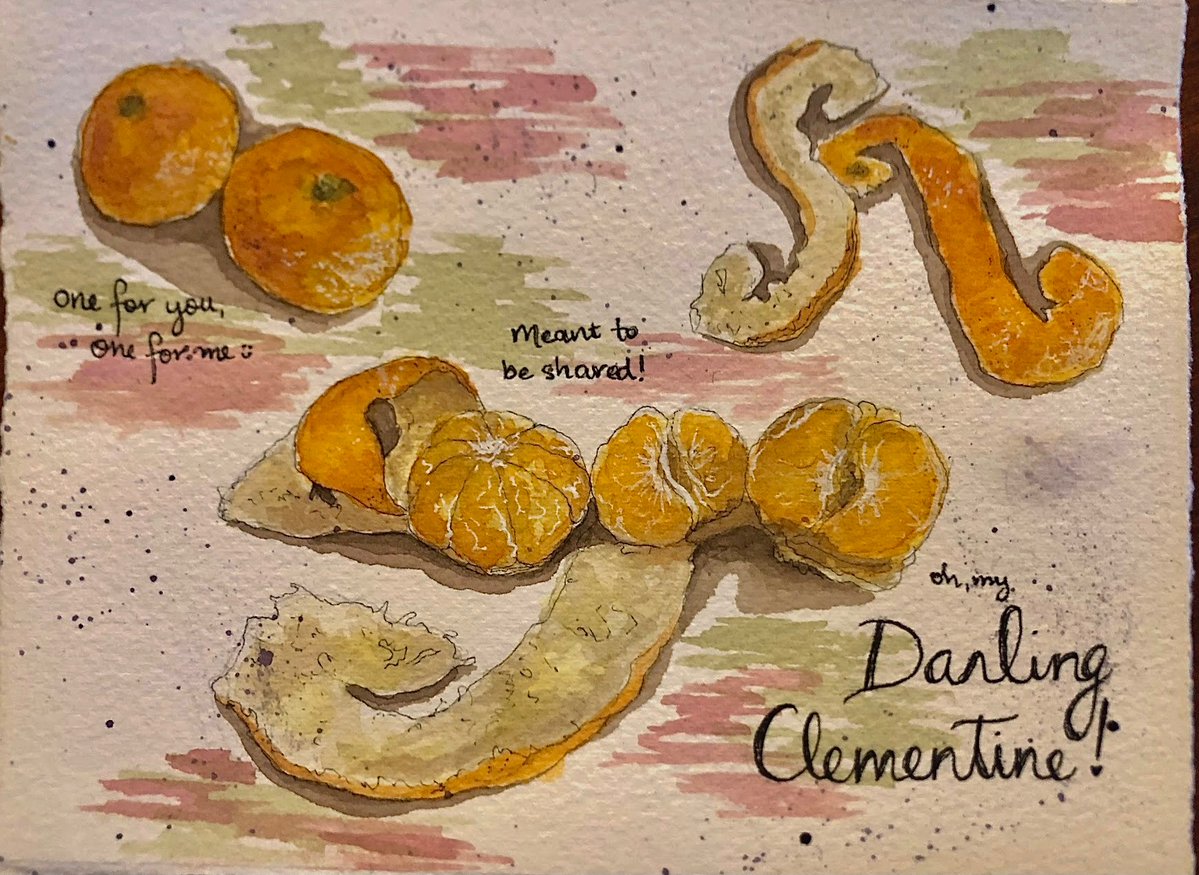 One for you,
One for me :)
Meant to
be shared!
oh, my
Darling
Clementine!